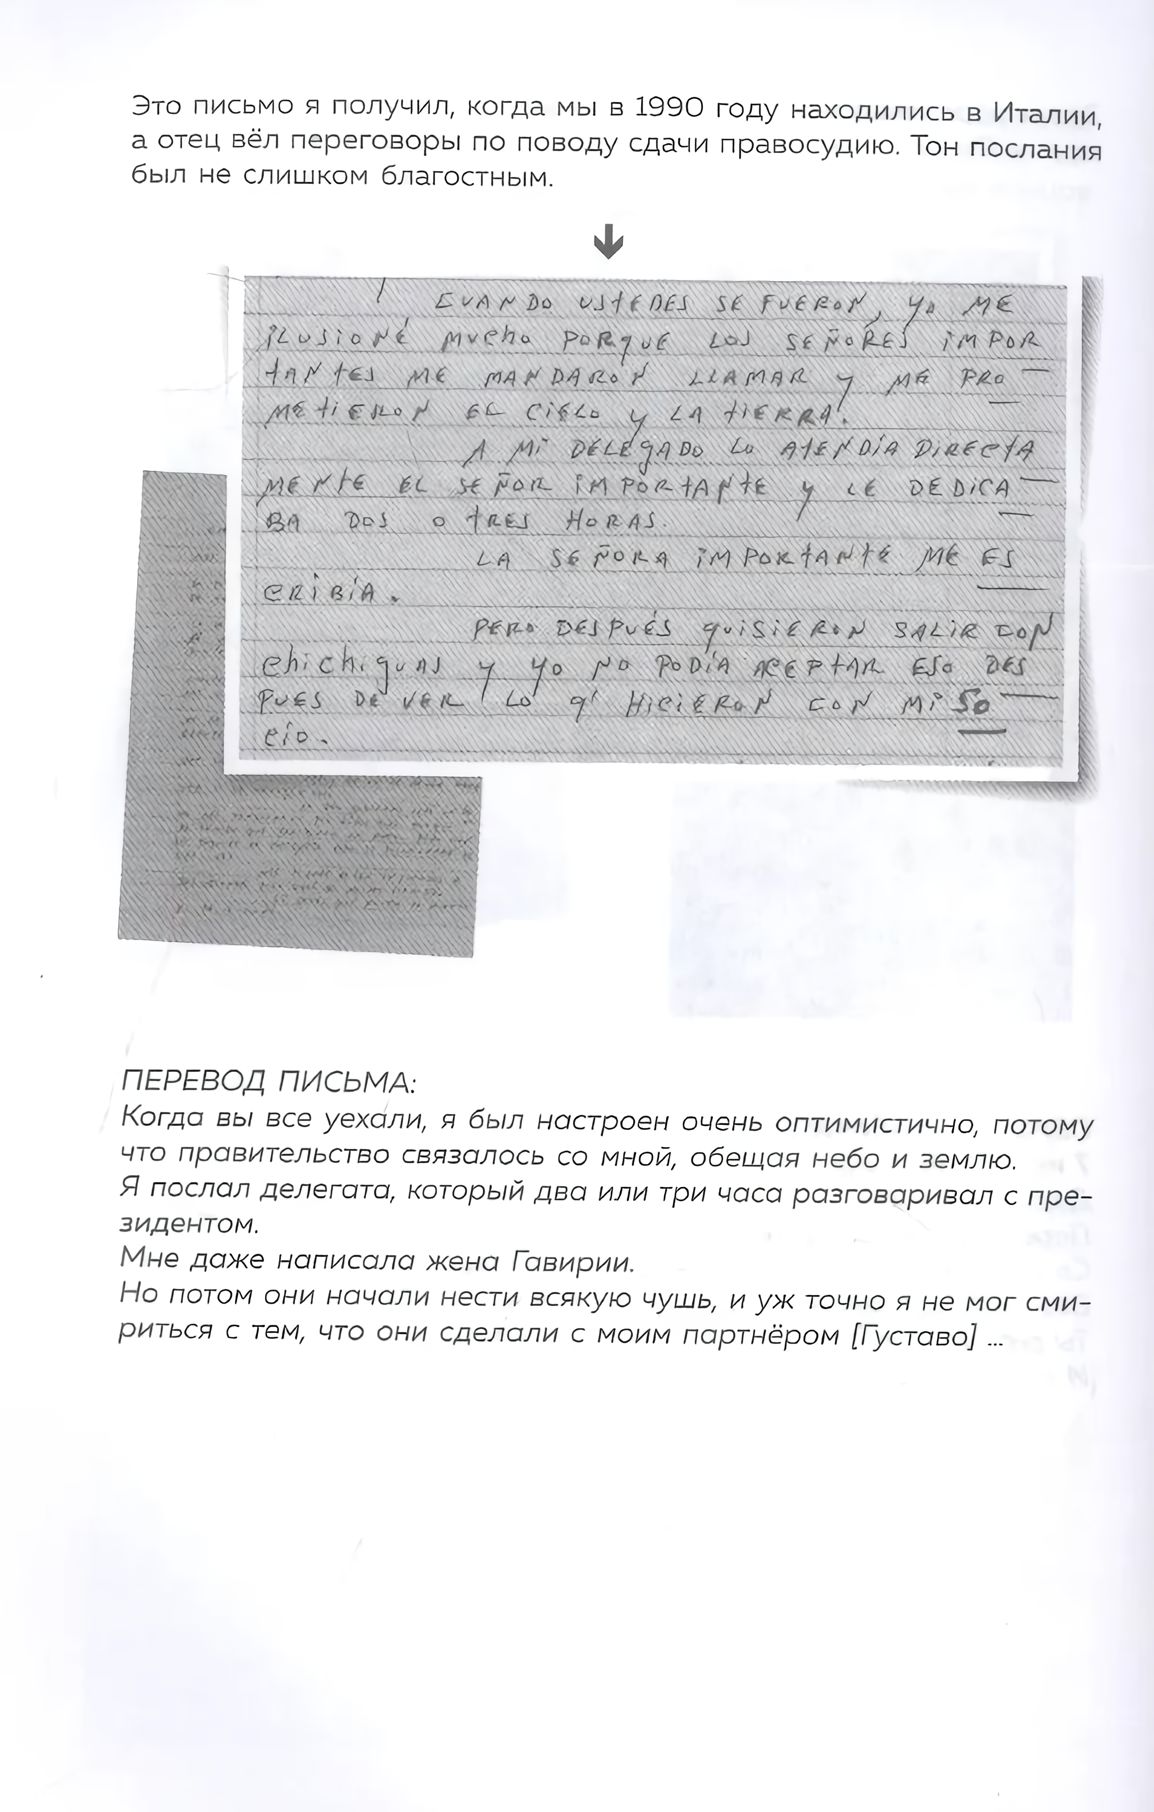 Это письмо я получил, когда мы в 1990 году находились в Италии,
а отец вёл переговоры по поводу сдачи правосудию. Тон послания
был не слишком благостным.
CUANDO USTEDES SE FUERON, YO ME
ILUSIONÉ MUCHO PORQUE LOS SEÑORES IMPOR
TANTES ME MANDARON LLAMAR Y ME PRO
METIERON EL CIELO Y LA TIERRA.
A MI DELEGADO LO ATENDÍA DIRECTA
MENTE EL SEÑOR IMPORTANTE Y LE DEDICA
BA DOS O TRES HORAS.
LA SEÑORA IMPORTANTE ME ES
CRIBÍA.
PERO DESPUÉS QUISIERON SALIR CON
CHICHIGUAS Y YO NO PODÍA ACEPTAR ESO DES
PUES DE VER LO Q' HICIERON CON MI SO
CIO.
ПЕРЕВОД ПИСЬМА:
Когда вы все уехали, я был настроен очень оптимистично, потому
что правительство связалось со мной, обещая небо и землю.
Я послал делегата, который два или три часа разговаривал с пре-
зидентом.
Мне даже написала жена Гавирии.
Но потом они начали нести всякую чушь, и уж точно я не мог сми-
риться с тем, что они сделали с моим партнёром [Густаво] ...